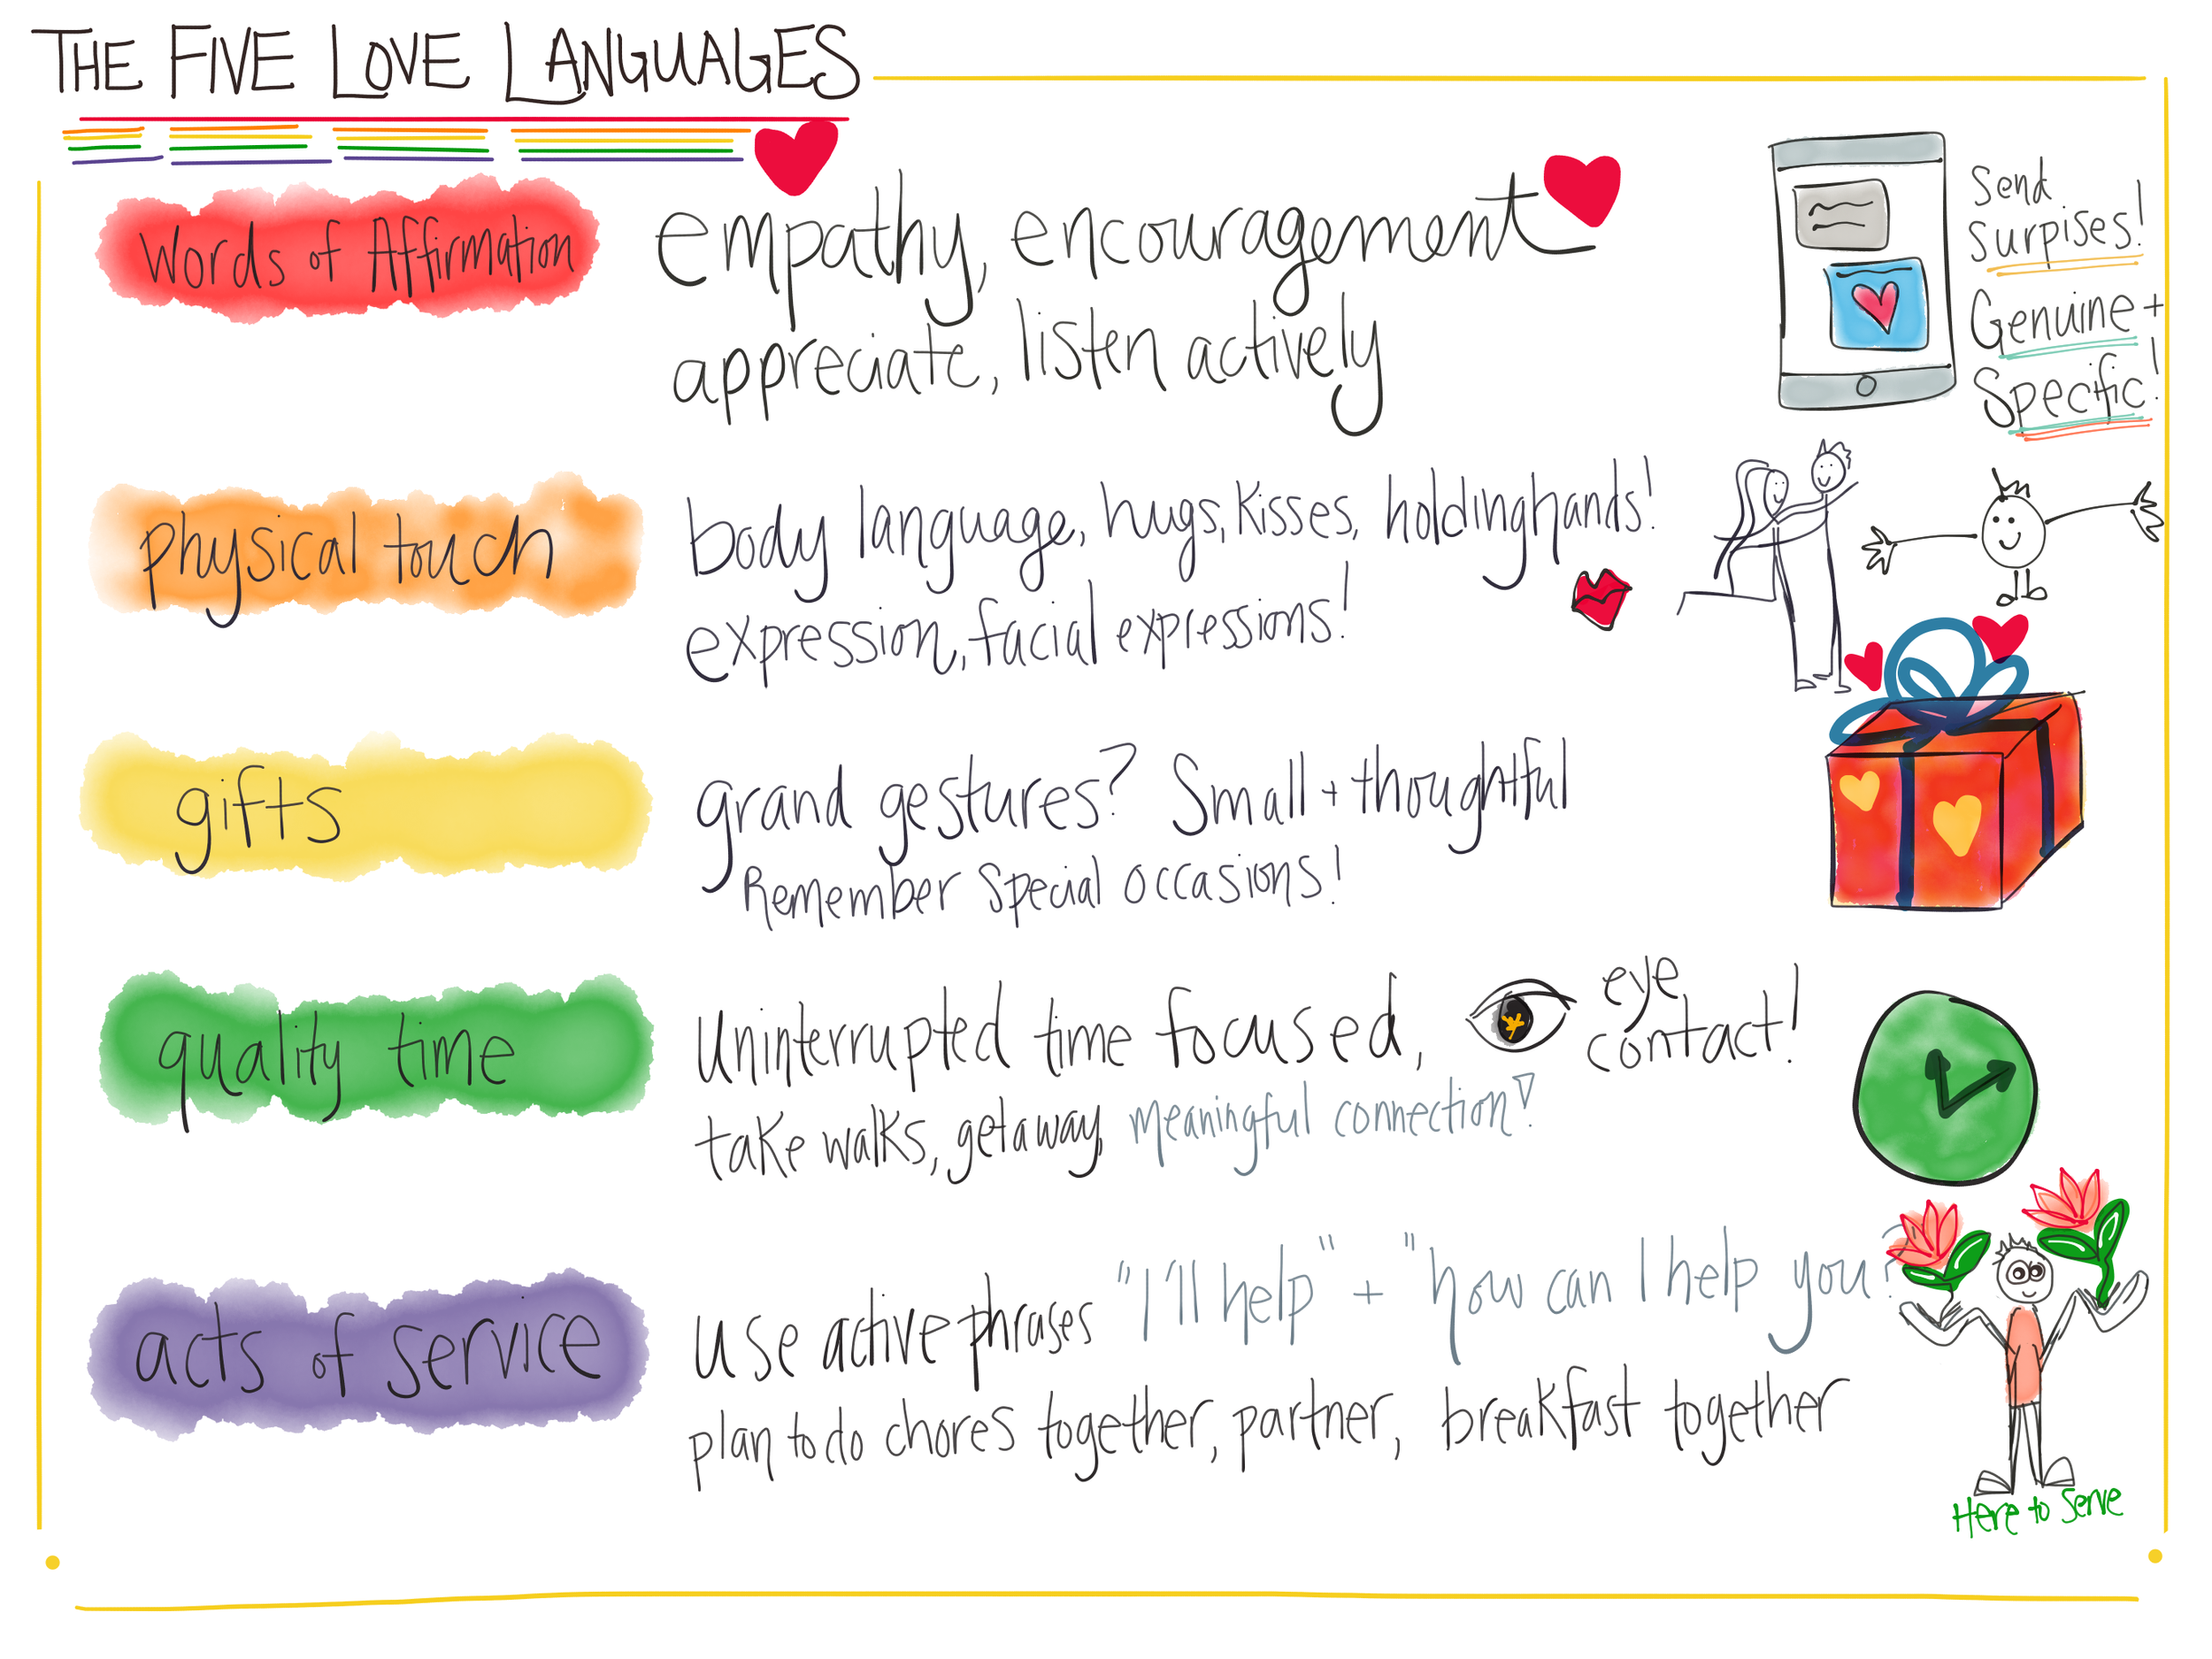 THE FIVE LOVE LANGUAGES
Words of Affirmation
empathy, encouragement
appreciate, listen actively
Send
surpises!
Genuine +
Specific!
physical touch
body language, hugs, kisses, holding hands!
expression, facial expressions!
gifts
grand gestures? Small + thoughtful
Remember special occasions!
quality time
Uninterrupted time focused,
eye
contact!
take walks, getaway, meaningful connection!
acts of service
use active phrases "I'll help" + "how can I help you?
plan to do chores together, partner, breakfast together
Here to Serve